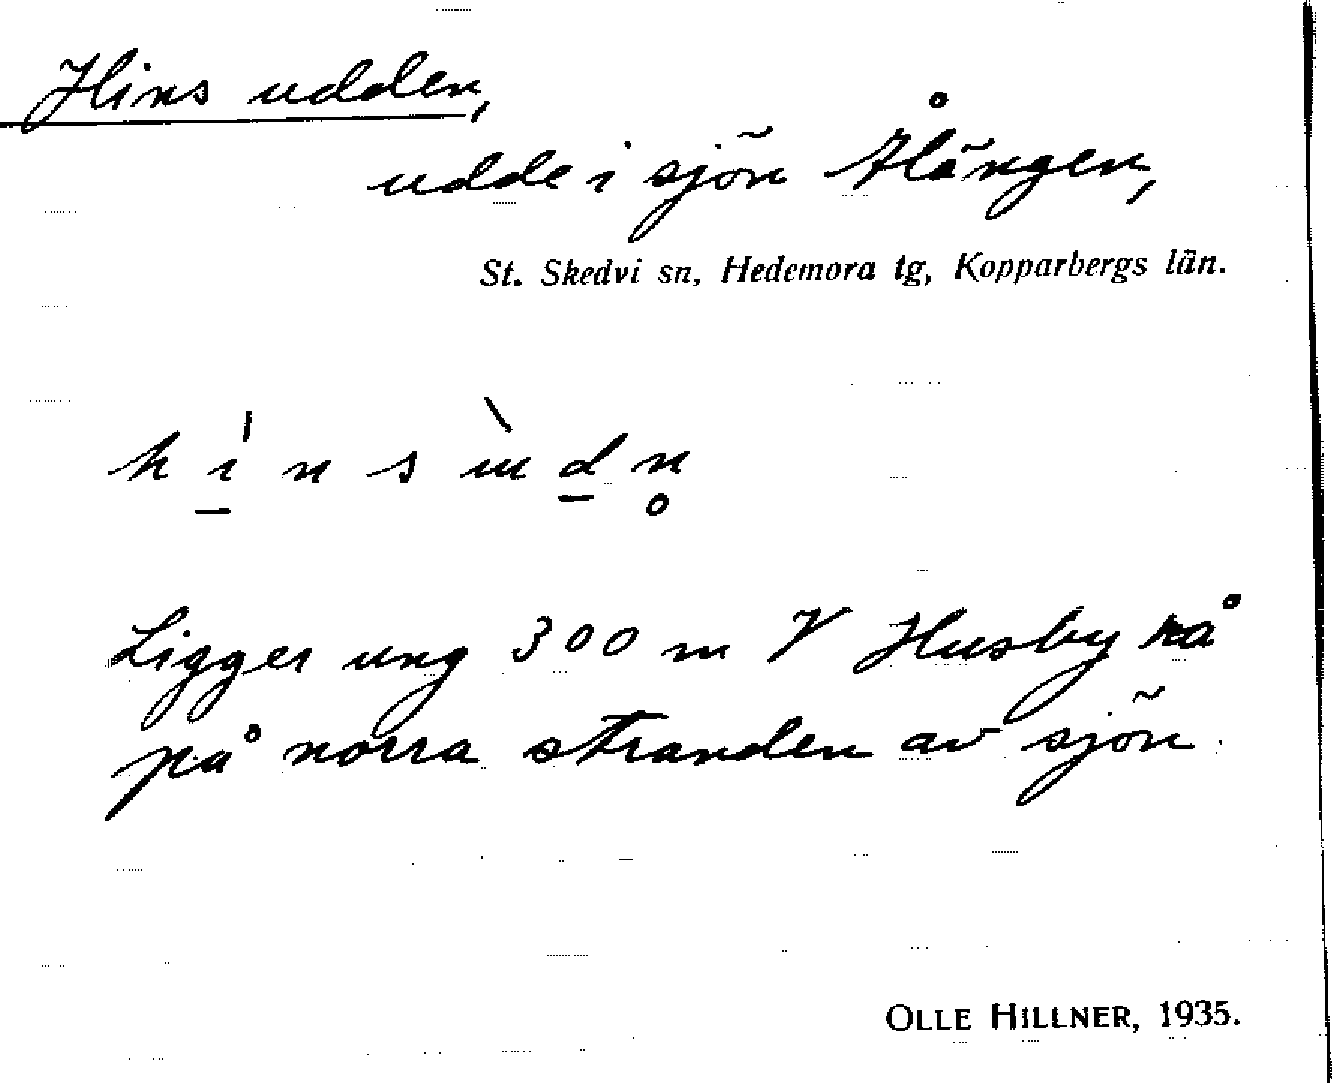 Hins udden,
udde i sjön Ålängen,
St. Skedvi sn, Hedemora tg, Kopparbergs län.
Ligger ung 300 m V Husby rå
på norra stranden av sjön.
OLLE HILLNER, 1935.